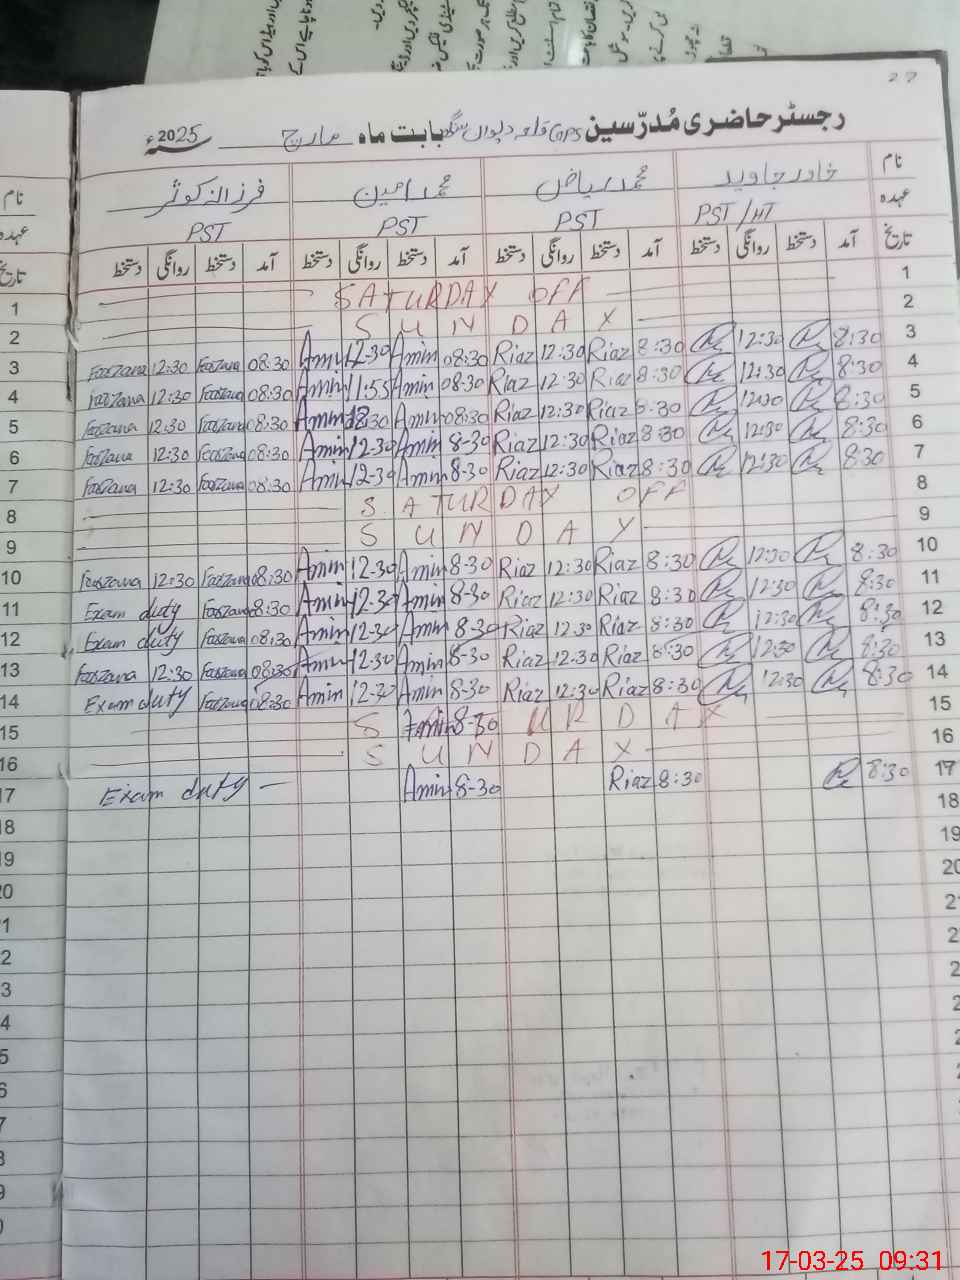 27
رجسٹر حاضری مُدرّسین GPS قلعہ دیوان سنگھ بابت ماہ مارچ 2025ء
نام خاور جاوید محمد ریاض محمد امین فرزانہ کوثر
عہدہ PST/HT PST PST PST
تاریخ آمد دستخط روانگی دستخط آمد دستخط روانگی دستخط آمد دستخط روانگی دستخط آمد دستخط روانگی دستخط
1 SATURDAY OFF 1
2 S U N D A Y 2
3 Farzana 12:30 Farzana 08:30 Amin 12-30 Amin 08:30 Riaz 12:30 Riaz 8:30 12:30 8:30 3
4 Farzana 12:30 Farzana 08:30 Amin 11:55 Amin 08-30 Riaz 12:30 Riaz 8:30 12:30 8:30 4
5 Farzana 12:30 Farzana 08:30 Amin 12:30 Amin 08:30 Riaz 12:30 Riaz 8:30 12:30 8:30 5
6 Farzana 12:30 Farzana 08:30 Amin 12-30 Amin 8-30 Riaz 12:30 Riaz 8:30 12:30 8:30 6
7 Farzana 12:30 Farzana 08:30 Amin 12-30 Amin 8-30 Riaz 12:30 Riaz 8:30 12:30 8:30 7
8 S ATURDAY OFF 8
9 S U N D A Y 9
10 Farzana 12:30 Farzana 08:30 Amin 12-30 Amin 8-30 Riaz 12:30 Riaz 8:30 12:30 8:30 10
11 Exam duty Farzana 08:30 Amin 12-30 Amin 8-30 Riaz 12:30 Riaz 8:30 12:30 8:30 11
12 Exam duty Farzana 08:30 Amin 12-30 Amin 8-30 Riaz 12:30 Riaz 8:30 12:30 8:30 12
13 Farzana 12:30 Farzana 08:30 Amin 12-30 Amin 8-30 Riaz 12:30 Riaz 8:30 12:30 8:30 13
14 Exam duty Farzana 08:30 Amin 12-30 Amin 8-30 Riaz 12:30 Riaz 8:30 12:30 8:30 14
15 S Amin 8-30 U R D A Y 15
16 S U N D A Y 16
17 Exam duty – Amin 8-30 Riaz 8:30 8:30 17
18 18
19 19
20 20
17-03-25 09:31